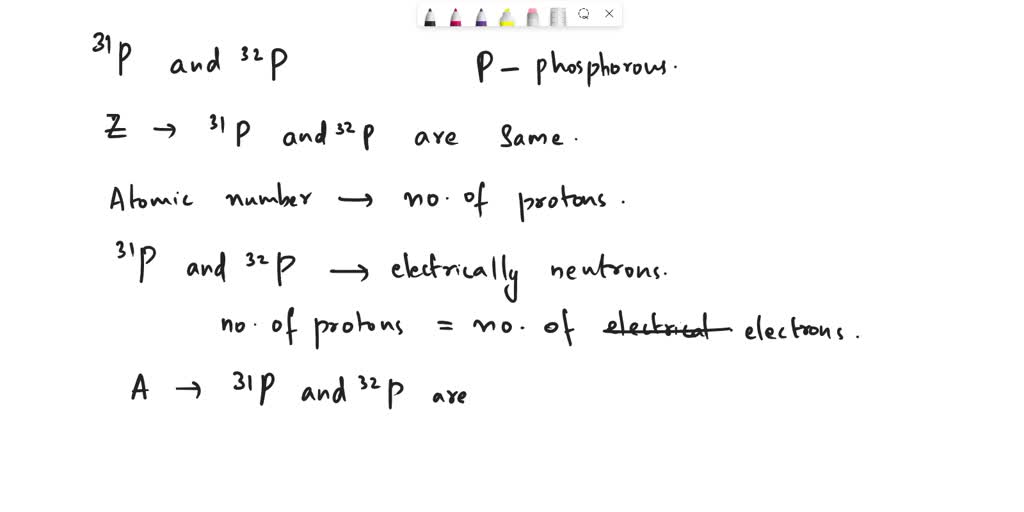 ³¹P and ³²P P - phosphorous.
Z → ³¹P and ³²P are same.
Atomic number → no. of protons.
³¹P and ³²P → electrically neutrons.
no. of protons = no. of electrical electrons.
A → ³¹P and ³²P are